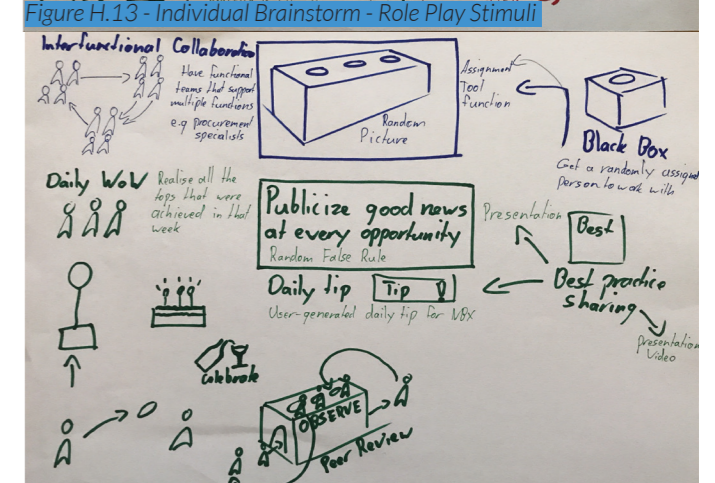 Figure H.13 - Individual Brainstorm - Role Play Stimuli
Interfunctional Collaboration
Have functional
teams that support
multiple functions
e.g procurement
specialists
Random
Picture
Assignment
Tool
function
Black Box
Get a randomly assigned
person to wak with
Daily WoW
Realise all the
tops that were
achieved in that
week
Publicize good news
at every opportunity
Random False Rule
Presentation
Best
Best practice
sharing
Presentation
Video
Daily tip
Tip !
User-generated daily tip for NBX
Celebrate
OBSERVE
Peer Review